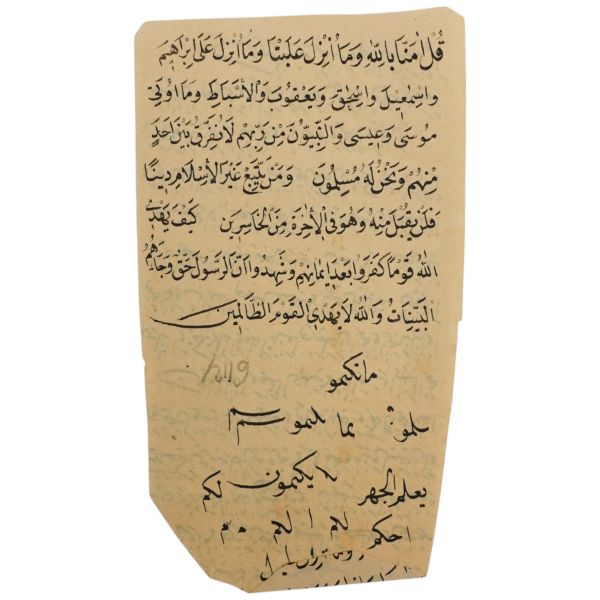 قُلْ اٰمَنَّا بِاللّٰهِ وَمَا اُنْزِلَ عَلَيْنَا وَمَا اُنْزِلَ عَلٰى اِبْرَاهِيمَ
وَاِسْمٰعِيلَ وَاِسْحٰقَ وَيَعْقُوبَ وَالْاَسْبَاطِ وَمَا اُوتِيَ
مُوسٰى وَعِيسٰى وَالنَّبِيُّونَ مِنْ رَبِّهِمْ لَا نُفَرِّقُ بَيْنَ اَحَدٍ
مِنْهُمْ وَنَحْنُ لَهُ مُسْلِمُونَ وَمَنْ يَبْتَغِ غَيْرَ الْاِسْلَامِ دِينًا
فَلَنْ يُقْبَلَ مِنْهُ وَهُوَ فِي الْاٰخِرَةِ مِنَ الْخَاسِرِينَ كَيْفَ يَهْدِي
اللّٰهُ قَوْمًا كَفَرُوا بَعْدَ اِيمَانِهِمْ وَشَهِدُوا اَنَّ الرَّسُولَ حَقٌّ وَجَاءَهُمُ
الْبَيِّنَاتُ وَاللّٰهُ لَا يَهْدِي الْقَوْمَ الظَّالِمِينَ
مانكتمو
يعلم الجهر يكتمون لكم
احكم